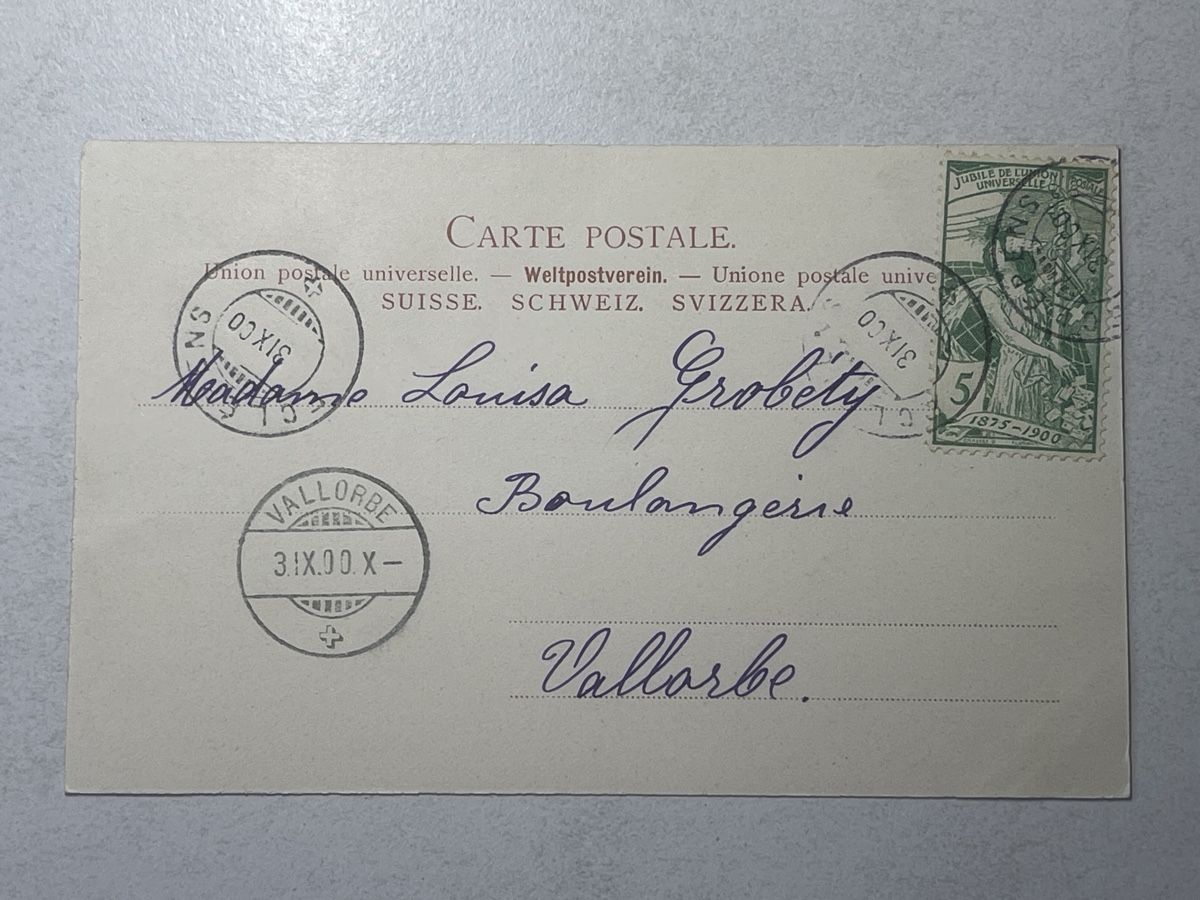 CARTE POSTALE.
Union postale universelle. — Weltpostverein. — Unione postale unive
SUISSE. SCHWEIZ. SVIZZERA.
JUBILE DE L'UNION POSTALE
UNIVERSELLE
5
1875-1900
3 IX 00
3 IX 00
Madame Louisa Grobéty
Boulangerie
VALLORBE
3.IX.00.X–
Vallorbe.